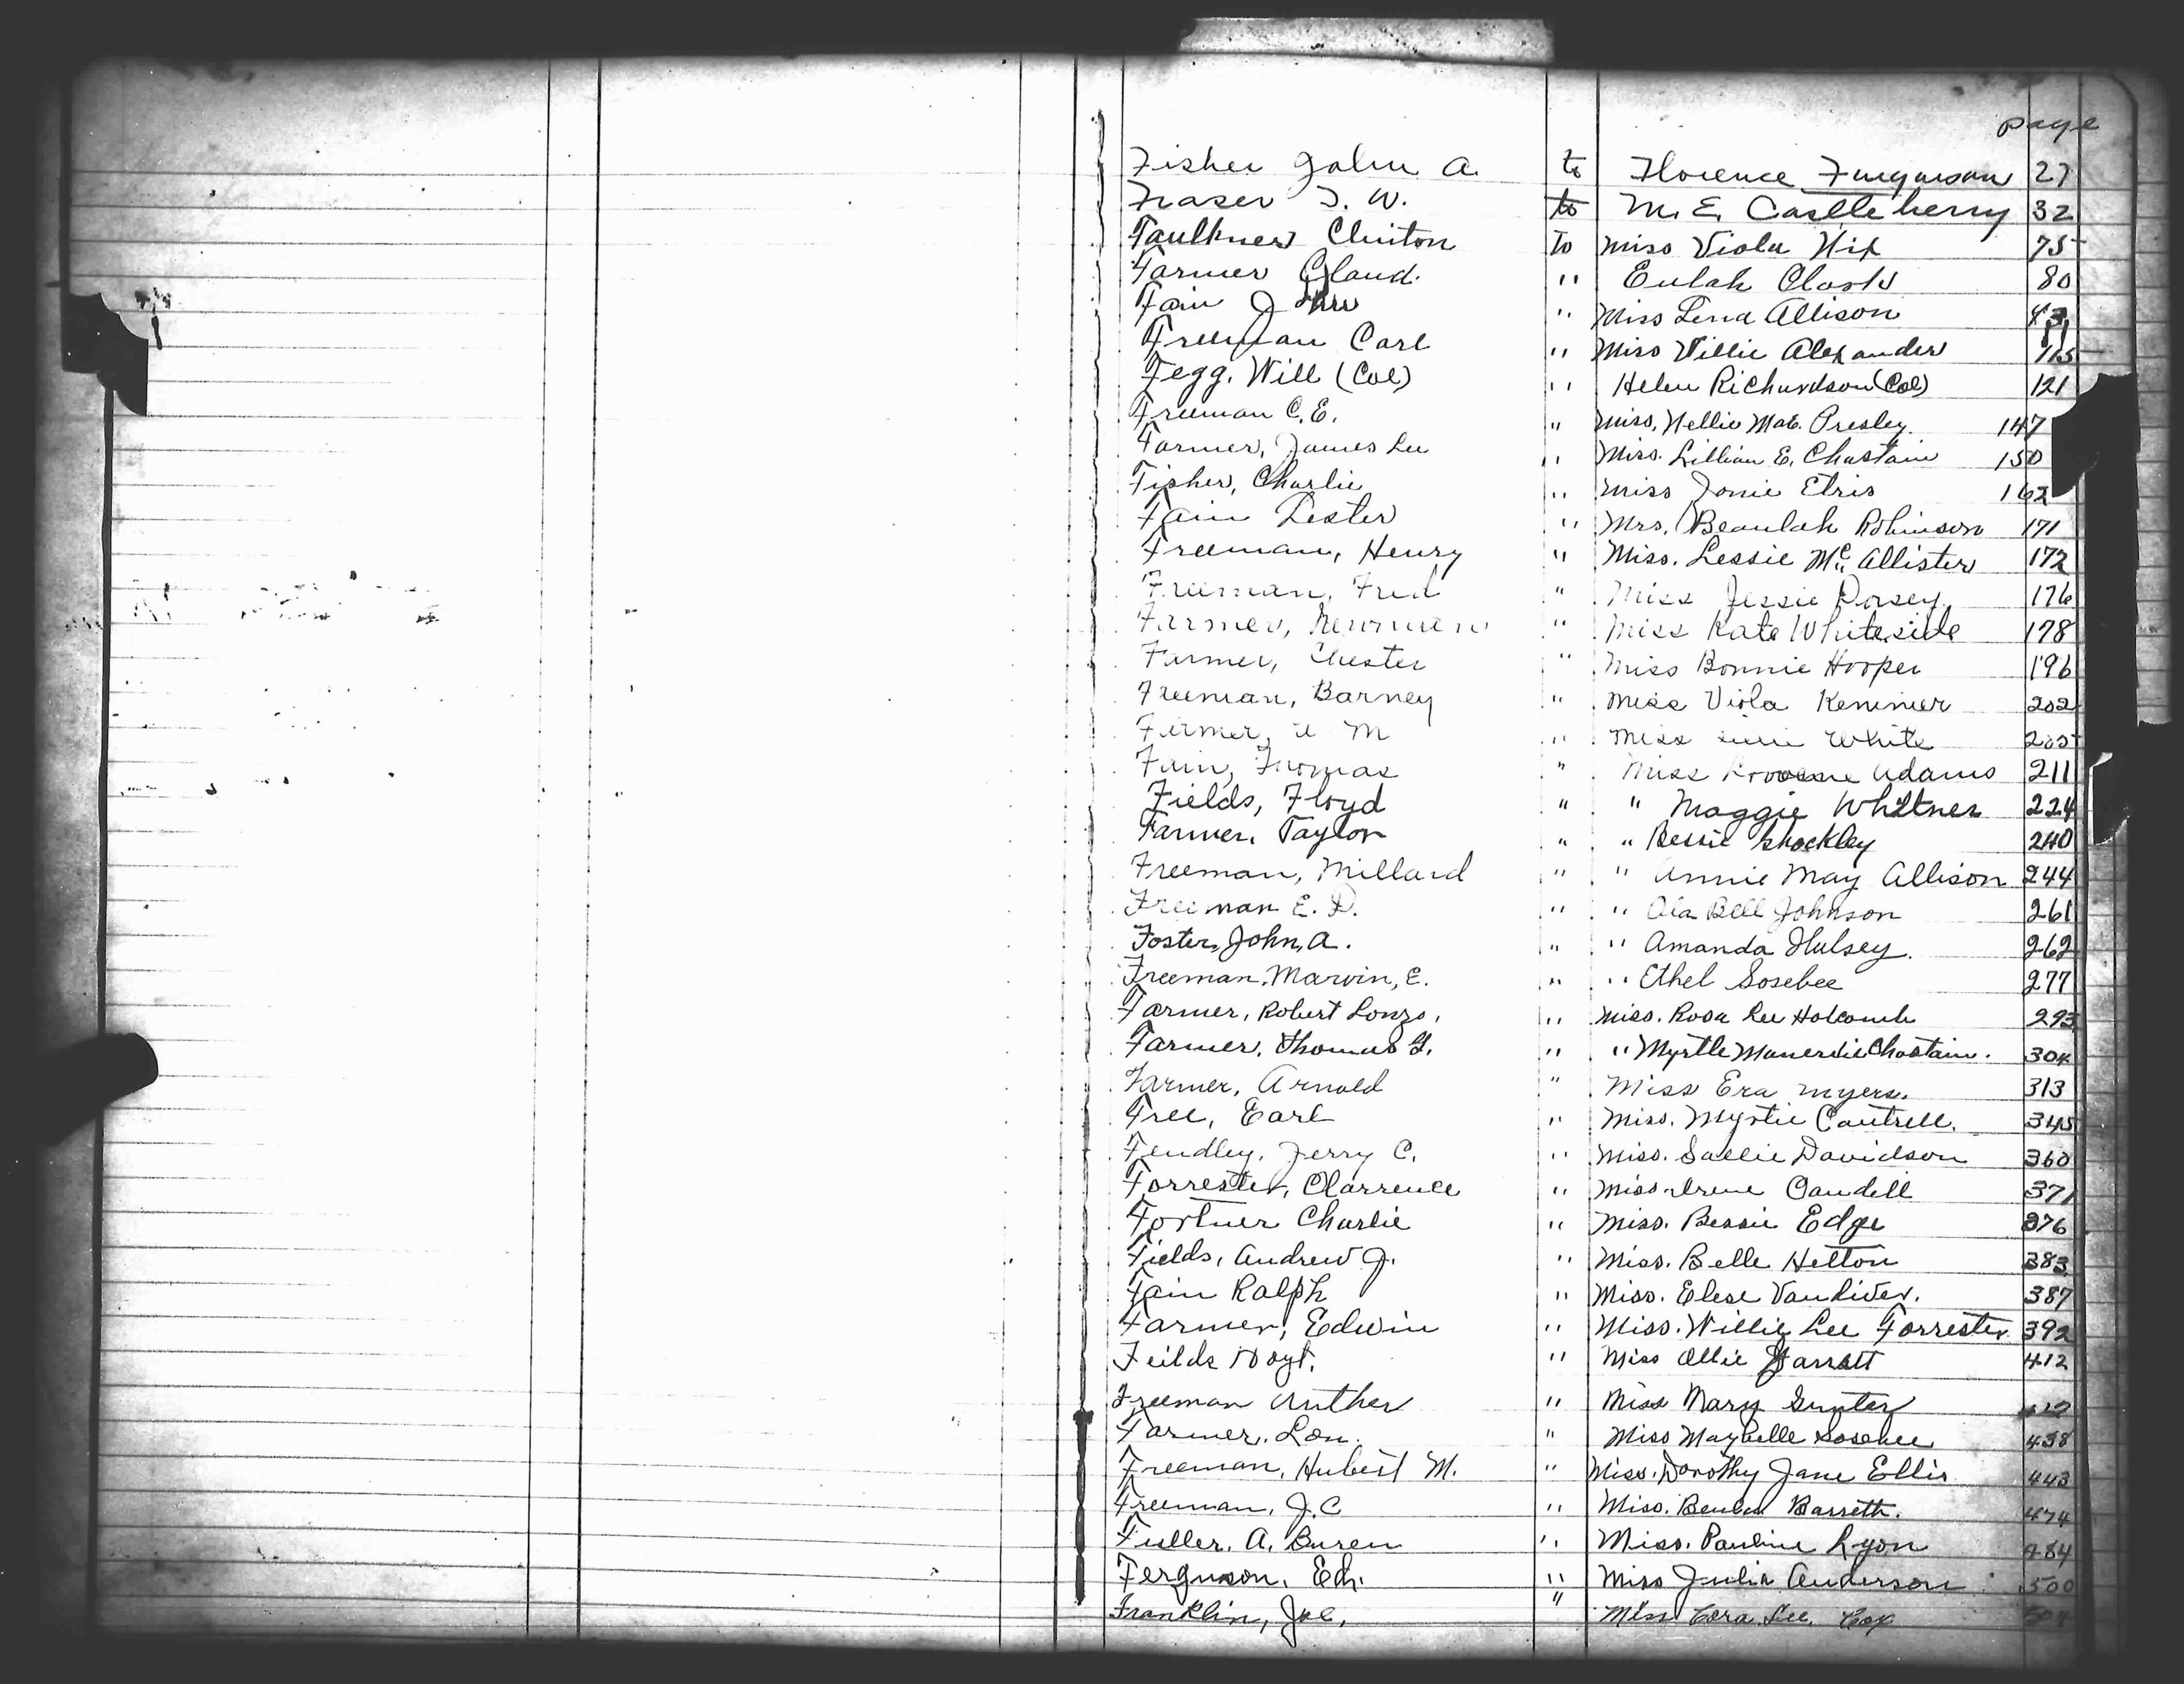 page
Fisher John A. to Florence Furguson 27
Fraser T. W. to M. E. Castleberry 32
Faulkner Clinton To Miss Viola Nix 75
Farmer Claud. " Eulah Clark 80
Fain John " Miss Lena Allison
Freeman Carl " Miss Willie Alexander 115
Fegg, Will (Col) " Helen Richardson (Col) 121
Freeman C. E. " Miss. Nellie Mae. Presley. 147
Farmer, James Lee " Miss. Lillian E. Chastain 150
Fisher, Charlie " Miss Jonie Elris 162
Fain Lester " Mrs. Beaulah Robinson 171
Freeman, Henry " Miss. Lessie McAllister 172
Freeman, Fred " Miss Jessie Dorsey 176
Farmer, Newman " Miss Kate Whiteside 178
Farmer, Chester " Miss Bonnie Hooper 196
Freeman, Barney " Miss Viola Kemmer 202
Farmer, M " Miss White 205
Fain, Thomas " Miss Adams 211
Fields, Floyd " " Maggie Whitner 224
Farmer. Taylor " " Bessie Shockley 240
Freeman, Millard " " Annie May Allison 244
Freeman E. D. " " Ola Bell Johnson 261
Foster, John, A. " " Amanda Hulsey. 262
Freeman. Marvin, E. " " Ethel Sosebee 277
Farmer, Robert Lonzo, " Miss. Rosa Lee Holcomb 293
Farmer. Thomas G. " " Myrtle Chastain. 304
Farmer, Arnold " Miss Era Myers. 313
Free, Earl " Miss. Myrtie Cantrell. 345
Fendley, Jerry C. " Miss. Sallie Davidson 360
Forrester, Clarrence " Miss Irene Caudell 371
Fortner Charlie " Miss. Bessie Edge 376
Fields, Andrew J. " Miss. Belle Helton 383
Fain Ralph " Miss. Elese Vandiver. 387
Farmer, Edwin " Miss. Willie Lee Forrester 392
Feilds Hoyt. " Miss Ollie Garrett 412
Freeman Auther " Miss Mary Gunter
Farmer. Lon. " Miss Maybelle Sosebee 438
Freeman, Hubert M. " Miss. Dorothy Jane Ellis 443
Freeman, J. C " Miss. Beulah Barrett. 474
Fuller. A. Buren " Miss. Pauline Lyon 484
Ferguson. Ed. " Miss Julia Anderson 500
Franklin, Joe, " Miss Cora Lee Cox